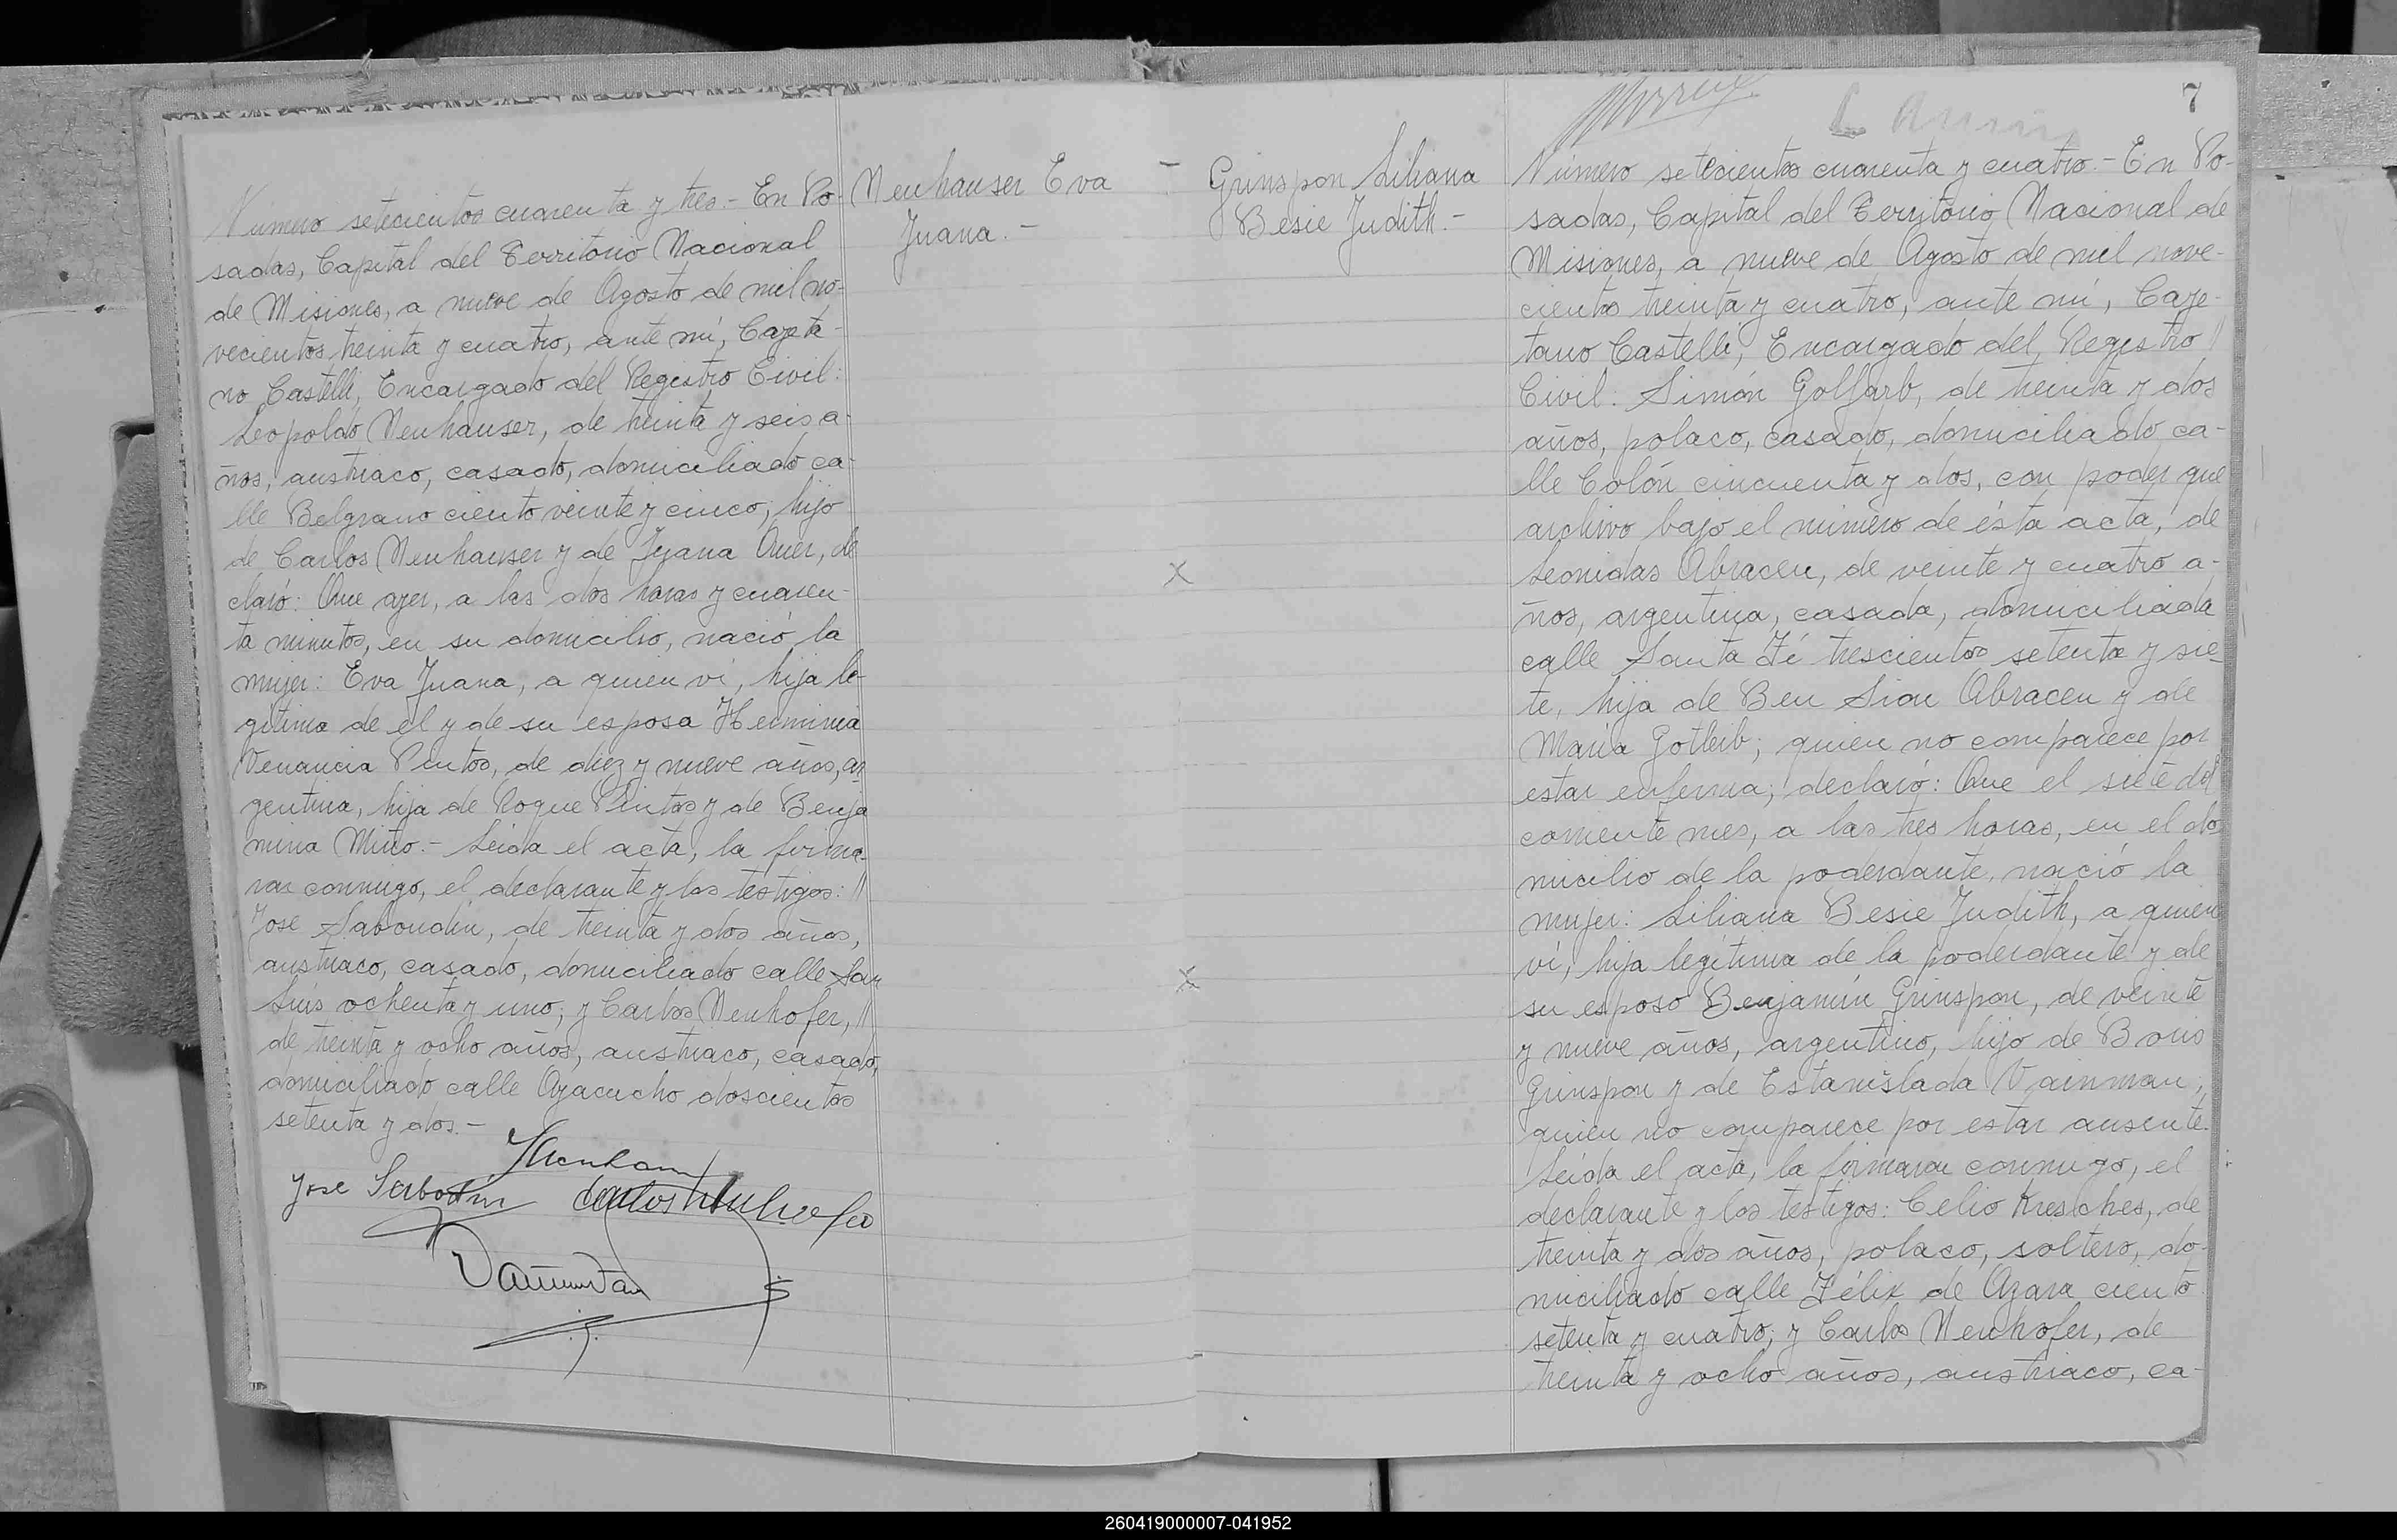 Número setecientos cuarenta y tres.- En Po-
sadas, Capital del Territorio Nacional
de Misiones, a nueve de Agosto de mil no-
vecientos treinta y cuatro, ante mí, Cayeta-
no Castelli, Encargado del Registro Civil:
Leopoldo Neuhauser, de treinta y seis a-
ños, austriaco, casado, domiciliado ca-
lle Belgrano ciento veinte y cinco; hijo
de Carlos Neuhauser y de Juana Auer, de
claró: Que ayer, a las dos horas y cuaren-
ta minutos, en su domicilio, nació la
mujer: Eva Juana, a quien ví, hija le-
gítima de el y de su esposa Herminia
Venancia Pintos, de diez y nueve años, ar
gentina, hija de Roque Pintos y de Benja
mina Miño.- Leida el acta, la firma-
ron conmigo, el declarante y los testigos: //
José Saboudin, de treinta y dos años,
austriaco, casado, domiciliado calle San
Luís ochenta y uno; y Carlos Neuhofer, //
de treinta y ocho años, austriaco, casado,
domiciliado calle Ayacucho doscientos
setenta y dos.-
José
Carlos
Neuhauser Eva
Juana.-
Grinspon Liliana
Besie Judith.-
7
Número setecientos cuarenta y cuatro.- En Po-
sadas, Capital del Territorio Nacional de
Misiones, a nueve de Agosto de mil nove-
cientos treinta y cuatro, ante mí, Caye-
tano Castelli, Encargado del Registro //
Civil: Simón Golfarb, de treinta y dos
años, polaco, casado, domiciliado ca-
lle Colón cincuenta y dos, con poder que
archivo bajo el número de ésta acta, de
Leonidas Abraceu, de veinte y cuatro a-
ños, argentina, casada, domiciliada
calle Santa Fé trescientos setenta y sie-
te, hija de Ben Sion Abraceu y de
María Gotleib; quien no comparece por
estar enferma; declaró: Que el siete del
corriente mes, a las tres horas, en el do
micilio de la poderdante, nació la
mujer: Liliana Besie Judith, a quien
ví, hija legítima de la poderdante y de
su esposo Benjamín Grinspon, de veinte
y nueve años, argentino, hijo de Boris
Grinspon y de Estanislada Vainman;
quien no comparece por estar ausente.
Leida el acta, la firmaron conmigo, el
declarante y los testigos: Celio Kresches, de
treinta y dos años, polaco, soltero, do-
miciliado calle Félix de Azara ciento
setenta y cuatro; y Carlos Neuhofer, de
treinta y ocho años, austriaco, ca-
260419000007-041952